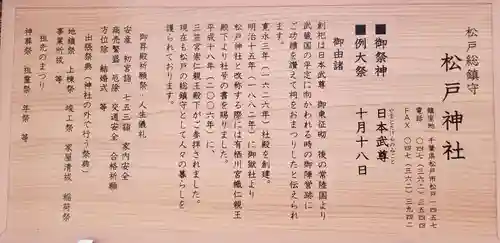 松戸総鎮守
松戸神社
鎮座地 千葉県松戸市松戸一四五七
電話 〇四七(三六二)三五四四
FAX 〇四七(三六二)三九四二
■御祭神 日本武尊
やまとたけるのみこと
■例大祭 十月十八日
御由緒
創祀は日本武尊 御東征砌 後の常陸国より
武蔵国の平定に向かわれる時の御陣営跡に
ご功績を讃えて祠をおまつりしたと伝えられ
ます。
寛永三年(一六二六年)社殿を創建。
明治十五年(一八八二年)に御嶽社より
松戸神社と改称する際には有栖川宮幟仁親王
殿下より社号の書を賜りました。
平成十八年(二〇〇六年)に、
三笠宮崇仁親王殿下がご参拝されました。
現在も松戸の総鎮守として人々の暮らしを
護られております。
御昇殿祈願祭・人生儀礼
安産 初宮詣 七五三詣 家内安全
商売繁盛 厄除 交通安全 合格祈願
方位除 結婚式 等
出張祭典(神社の外で行う祭典)
地鎮祭 上棟祭 竣工祭 家屋清祓 稲荷祭
事業所祓 等
祖先のまつり
神葬祭 祖霊祭 年祭 等